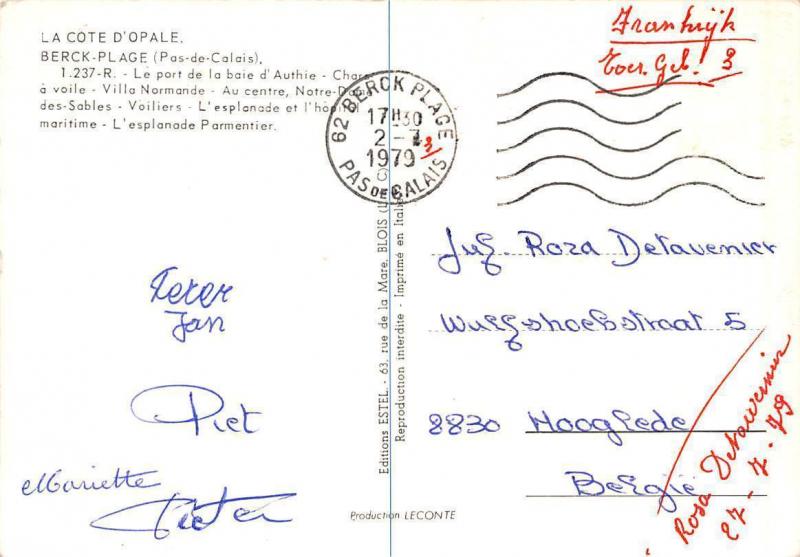 LA COTE D'OPALE.
BERCK-PLAGE (Pas-de-Calais).
1.237-R. - Le port de la baie d'Authie - Chars
à voile - Villa Normande - Au centre, Notre-Dame
des-Sables - Voiliers - L'esplanade et l'hôpital
maritime - L'esplanade Parmentier.
62 BERCK PLAGE
17H30
2-7
1979
PAS DE CALAIS
3
Frankrijk
Toer. Geb. 3
Peter
Jan
Piet
Mariette
Pieter
Editions ESTEL - 63, rue de la Mare, BLOIS
Reproduction interdite - Imprimé en Italie
Production LECONTE
Juf. Roza Detavenier
Wulfshoekstraat 5
8830 Hooglede
België
Rosa Detavernier
27-7-79